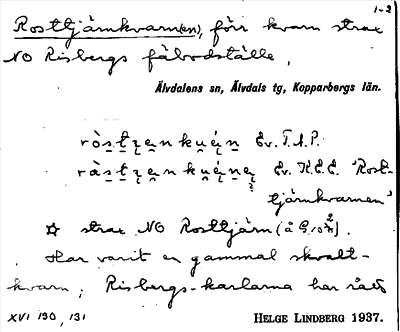 1-2
Rosttjärnkvarn(en), förr kvarn strax
NO Risbergs fäbodställe.
Älvdalens sn, Älvdals tg, Kopparbergs län.
Ev. T.A.P.
Ev. K.E.E. "Rost-
tjärnkvarnen"
☆ strax NO Rosttjärn (å G.
Har varit en gammal skvalt-
kvarn; Risbergs-karlarna har
XVI 130, 131
HELGE LINDBERG 1937.